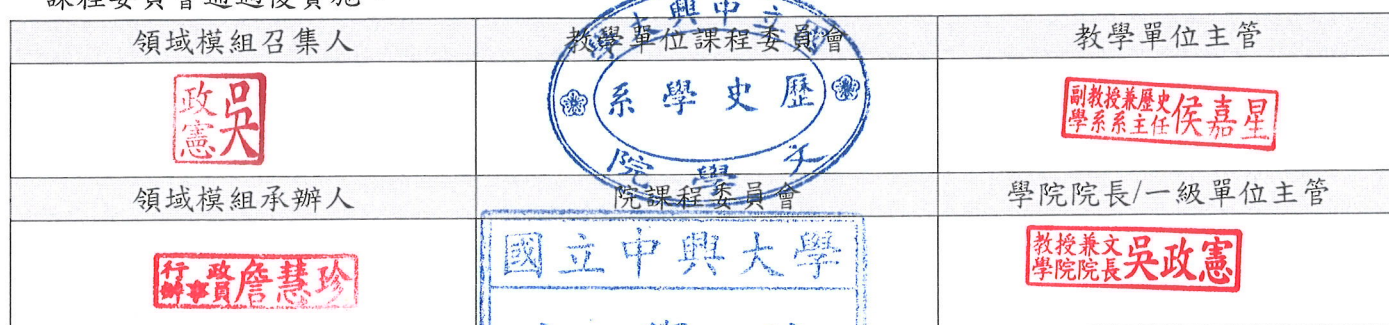 課程委員會通過後實施
領域模組召集人
教學單位課程委員會
教學單位主管
吳政憲
國立中興大學
歷史學系
文學院
副教授兼歷史學系系主任侯嘉星
領域模組承辦人
院課程委員會
學院院長/一級單位主管
行政辦事員詹慧珍
國立中興大學
教授兼文學院院長吳政憲